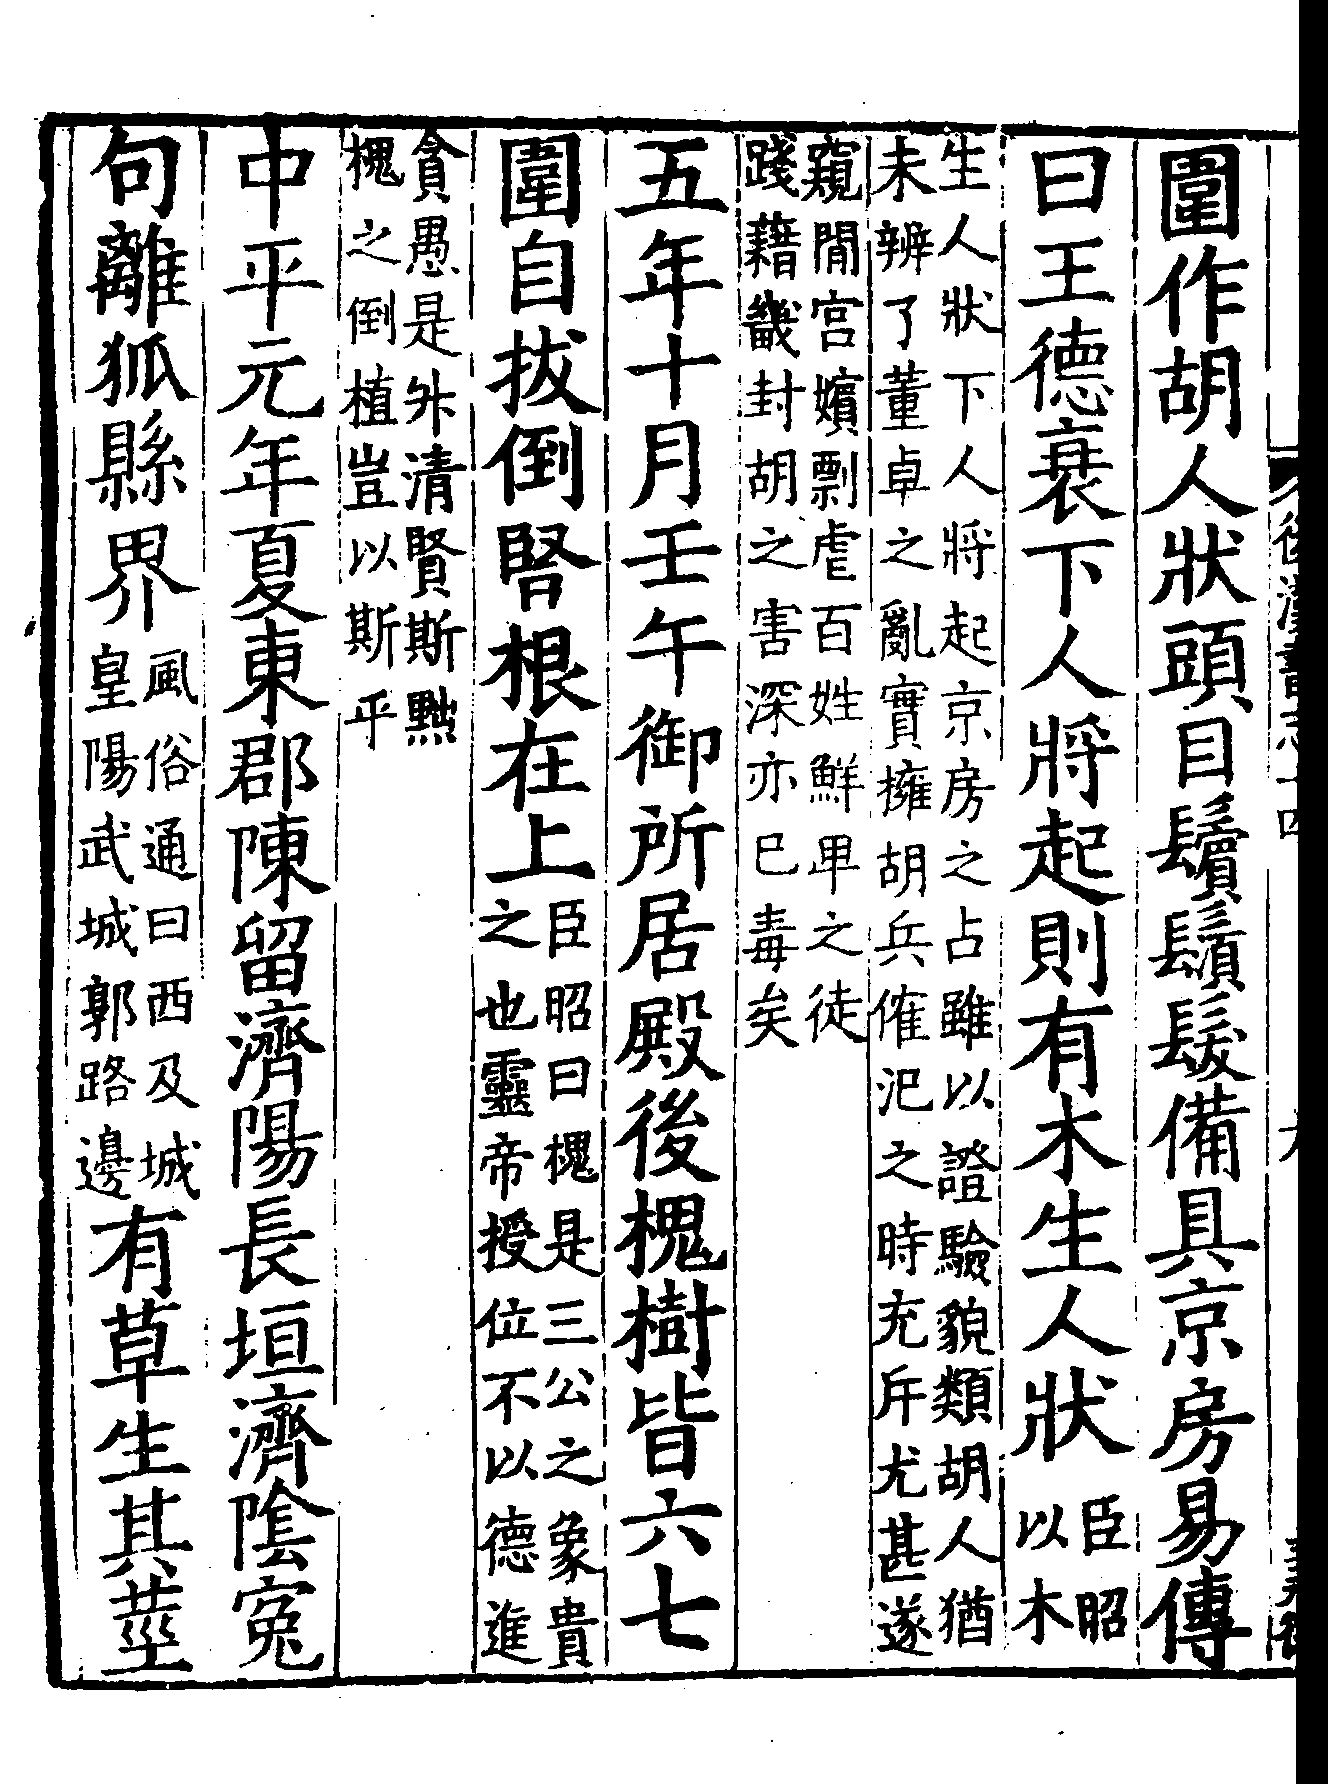 圍作胡人狀頭目鬢鬚髮備具京房易傳
曰王德衰下人將起則有木生人狀
臣昭
以木
生人狀下人將起京房之占雖以證驗貌類胡人猶
未辨了董卓之亂實擁胡兵傕汜之時充斥尤甚遂
窺閒宮嬪剽虐百姓鮮卑之徒
踐藉畿封胡之害深亦巳毒矣
五年十月壬午御所居殿後槐樹皆六七
圍自拔倒竪根在上
臣昭曰槐是三公之象貴
之也靈帝授位不以德進
貪愚是升清賢斯黜
槐之倒植豈以斯乎
中平元年夏東郡陳留濟陽長垣濟陰寃
句離狐縣界
風俗通曰西及城
皇陽武城郭路邊
有草生其莖